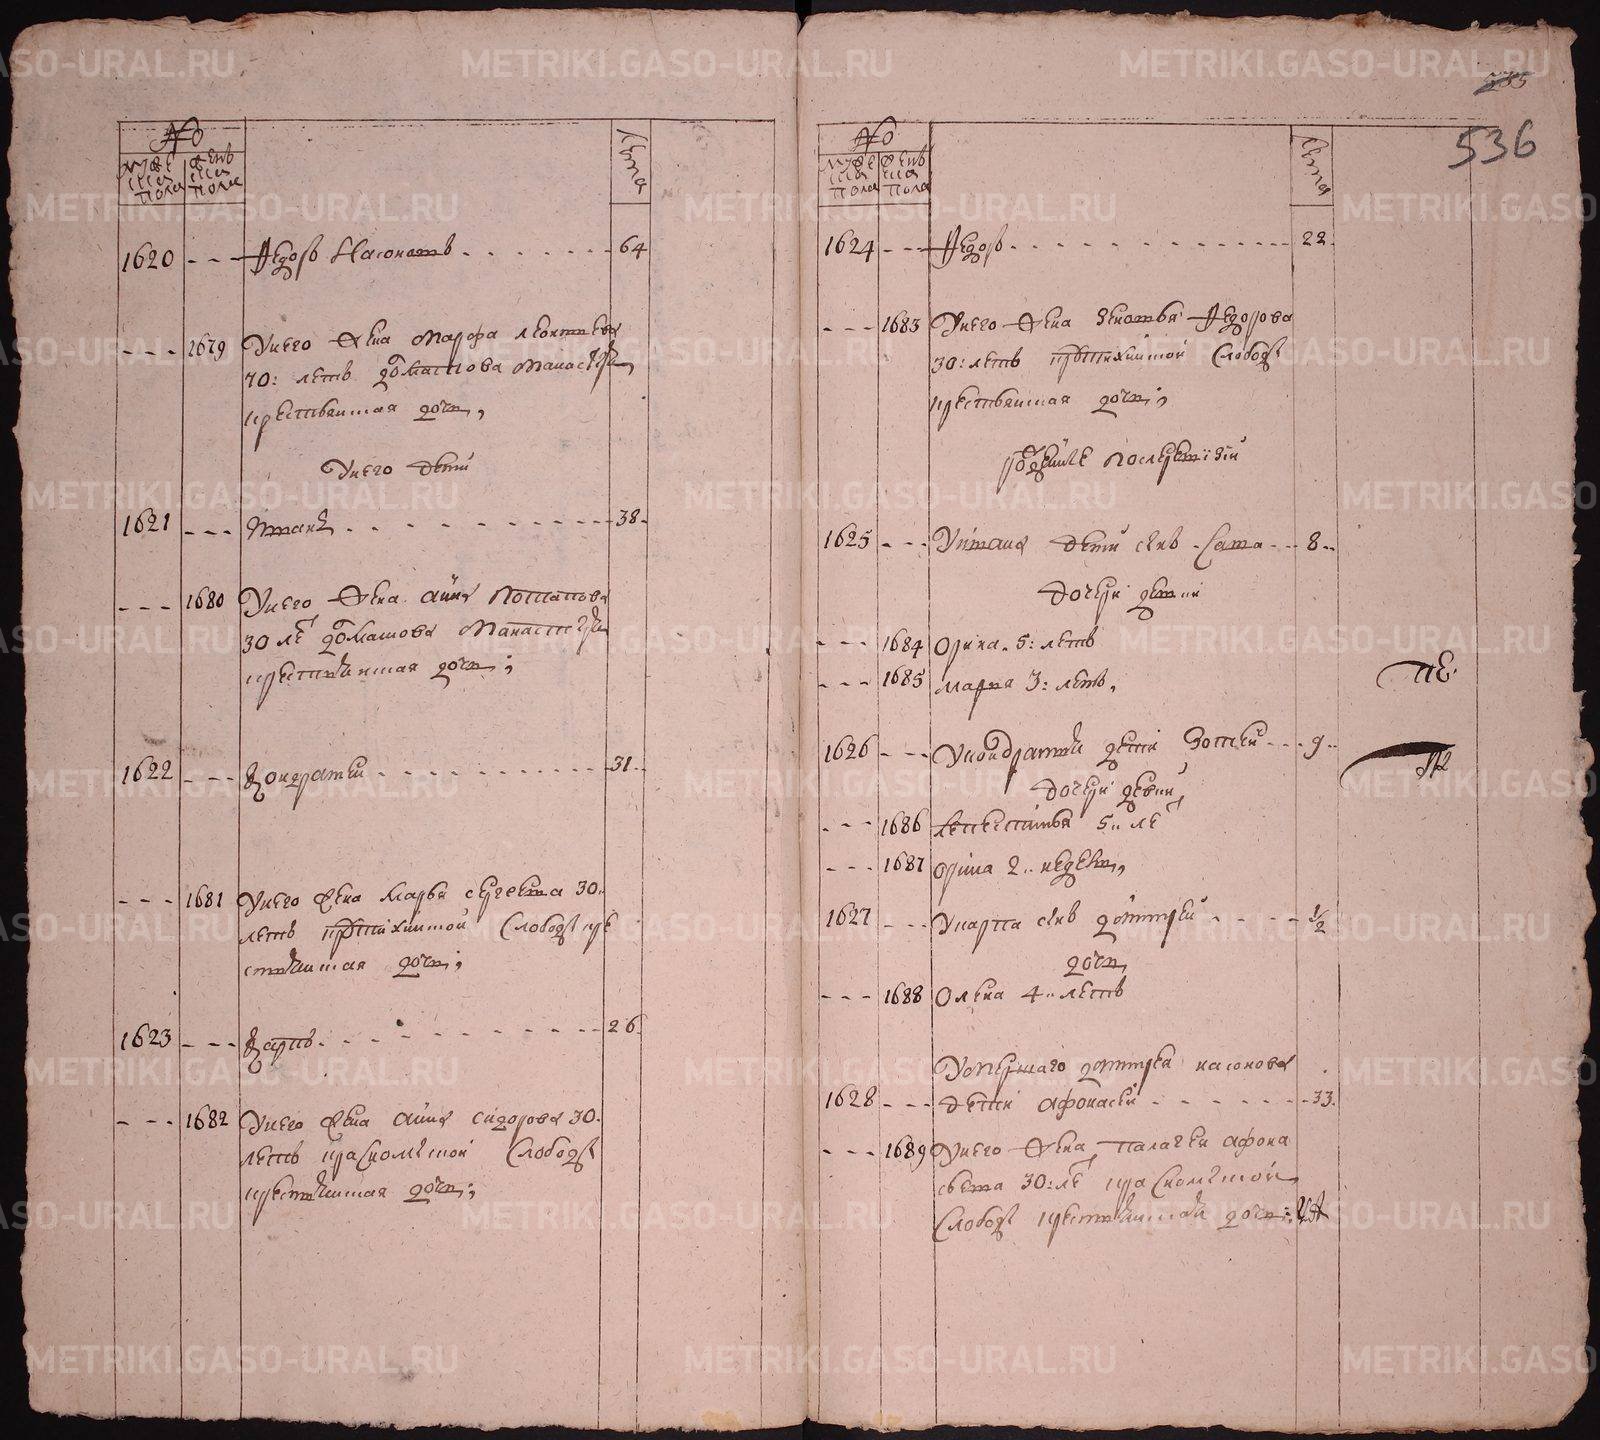 №
муже
ска
пола
женѣ
ска
пола
лета
1620 - - - Ѳедоръ Насоновъ 64
- - - 1679 У него жена Марфа Леонтьева
70: летъ долматова манастыря
крестьянская дочь,
У него дети
1621 - - - Иванъ 38
- - - 1680 У него жена Анна Потапова
30 ле долматова манастыря
крестьянская дочь;
1622 - - - Кондратей 31
- - - 1681 У него жена Марья Сергеева 30
летъ слободы кре
стьянская дочь;
1623 - - - Карпъ 26
- - - 1682 У него жена Анна Сидорова 30
летъ красномыской слободы
крестьянская дочь;
535
536
№
муже
ска
пола
женѣ
ска
пола
лета
1624 - - - Ѳедоръ 22
- - - 1683 У него жена Зеновья Ѳедорова
30: летъ слободы
крестьянская дочь;
рожденные после ревизіи
1625 - - - У Ивана дети сынъ Сава 8
дочери девки
- - - 1684 Орина 5: летъ
- - - 1685 Марья 3: летъ,
пе
1626 - - - У Кондратья дети Зотей 9
дочери девки
- - - 1686 5 ле
- - - 1687 Орина 2 недель,
1627 - - - У Карпа сынъ Дмитрей 1/2
дочь
- - - 1688 Олена 4 летъ
Умершаго Дмитрея Насонова
1628 - - - дети Афонасей 33
- - - 1689 У него жена Палагея Афона
сьева 30: ле красномыской
слободы крестьянская дочь;